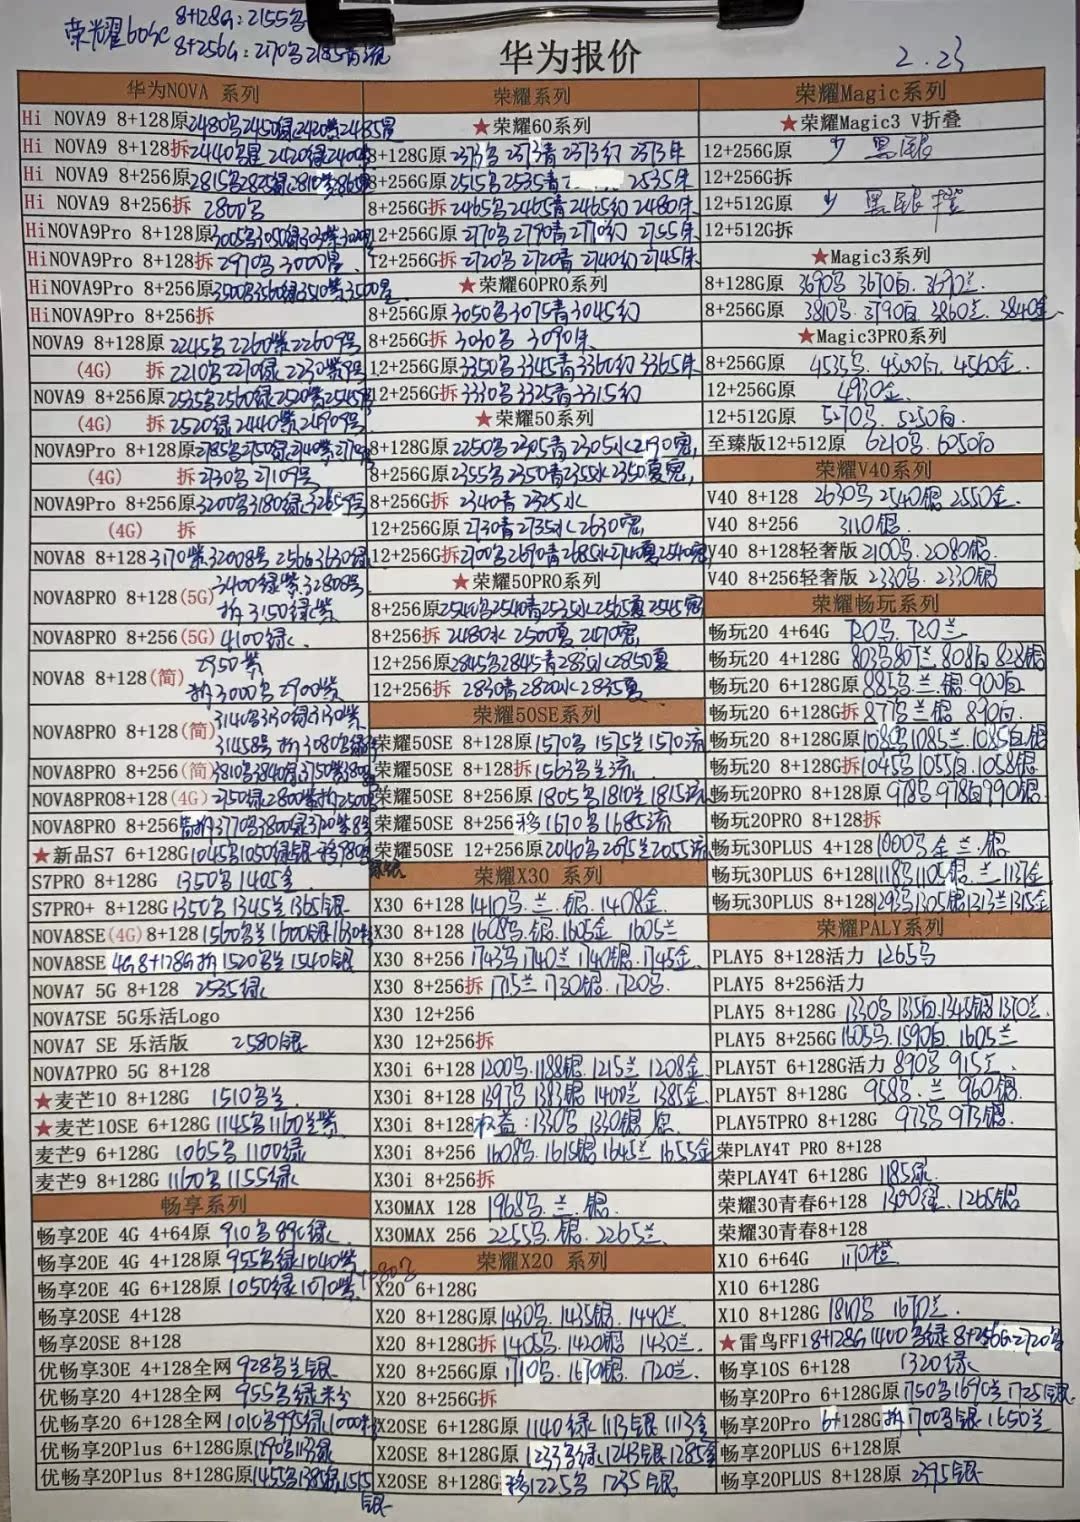 荣光耀60SE 8+128G:2155鸟
8+256G:2170鸟2185青流
华为报价
2.23
华为NOVA 系列
Hi NOVA9 8+128原2480鸟2450绿2420紫2485星
Hi NOVA9 8+128拆2440鸟星 2420绿2400紫
Hi NOVA9 8+256原2815鸟2825绿2810紫2865星
Hi NOVA9 8+256拆 2800鸟
HiNOVA9Pro 8+128原3005鸟3050绿
HiNOVA9Pro 8+128拆 2970鸟3000星
HiNOVA9Pro 8+256原3500鸟3560绿3510紫3500星
HiNOVA9Pro 8+256拆
NOVA9 8+128原 2245鸟2260紫22609号
(4G) 拆 2210鸟2210绿2230紫9号
NOVA9 8+256原2535鸟2560绿2520紫
(4G) 拆 2520绿2440紫24909号
NOVA9Pro 8+128原2785鸟2750绿2740紫
(4G) 拆2730鸟27109号
NOVA9Pro 8+256原3200鸟3180绿
(4G) 拆
NOVA8 8+128 3170紫32008号 256G3630绿
NOVA8PRO 8+128(5G) 3400绿紫32808号
拆3150绿紫
NOVA8PRO 8+256(5G) 4100绿
NOVA8 8+128(简) 2950紫
拆3000鸟2900紫
NOVA8PRO 8+128(简) 3140鸟3130绿3130紫
31458号 拆3080鸟绿
NOVA8PRO 8+256(简) 3810鸟3840绿3750紫
NOVA8PRO8+128(4G) 2750绿2800紫拆2500
NOVA8PRO 8+256 拆3770鸟3800绿3720紫8号
★新品S7 6+128G1045鸟1050绿银 移980
S7PRO 8+128G 1350鸟1405金
S7PRO+ 8+128G1350鸟1345兰1365银
NOVA8SE(4G)8+128 1560鸟兰1600银
NOVA8SE 4G8+128G拆1520鸟兰1540银
NOVA7 5G 8+128 2535绿
NOVA7SE 5G乐活Logo
NOVA7 SE 乐活版 2580银
NOVA7PRO 5G 8+128
★麦芒10 8+128G 1510鸟兰
★麦芒10SE 6+128G1145鸟1160兰紫
麦芒9 6+128G 1065鸟1100绿
麦芒9 8+128G 1160鸟1155绿
畅享系列
畅享20E 4G 4+64原 910鸟890绿
畅享20E 4G 4+128原 955鸟绿1040紫
畅享20E 4G 6+128原 1050绿1070紫 1080鸟
畅享20SE 4+128
畅享20SE 8+128
优畅享30E 4+128全网 928鸟兰银
优畅享20 4+128全网 955鸟绿粉
优畅享20 6+128全网1010鸟995绿1000粉
优畅享20Plus 6+128G原1190鸟1113绿
优畅享20Plus 8+128G原1455鸟1385绿1515
银
荣耀系列
★荣耀60系列
8+128G原 2373鸟 2373青2373幻 2373朱
8+256G原 2515鸟2535青 2535朱
8+256G拆 2465鸟2465青2465幻2480朱
12+256G原 2770鸟2790青2770幻 2755朱
12+256G拆 2720鸟2720青 2740幻2745朱
★荣耀60PRO系列
8+256G原 3050鸟3075青3045幻
8+256G拆 3030鸟 3090朱
12+256G原 3350鸟3345青3360幻3365朱
12+256G拆 3330鸟3325青3315幻
★荣耀50系列
8+128G原 2250鸟2305青2305水2190宽
8+256G原2355鸟2350青2355水2350夏宽
8+256G拆 2340青 2325水
12+256G原 2730青2735水2630宽
12+256G拆2700鸟2690青2685水2740夏2540宽
★荣耀50PRO系列
8+256原2540鸟2540青2535水2565夏2545宽
8+256拆 2480水 2500夏 2470宽
12+256原2845鸟2845青2835水2850夏
12+256拆 2830青2820水2835夏
荣耀50SE系列
荣耀50SE 8+128原1570鸟 1575兰1570流
荣耀50SE 8+128拆1563鸟兰流
荣耀50SE 8+256原1805鸟1810兰1815流
荣耀50SE 8+256移1670鸟1685流
荣耀50SE 12+256原2040鸟2695兰2055流
荣耀X30 系列
X30 6+128 1410鸟.兰.银.1408金
X30 8+128 1608鸟.银.1605金 1605兰
X30 8+256 1743鸟1740兰1740银.1745金
X30 8+256拆 1715兰1730银.1720鸟
X30 12+256
X30 12+256拆
X30i 6+128 1200鸟.1188银.1215兰1208金
X30i 8+128 1397鸟1383银 1400兰 1385金
X30i 8+128权益:1330鸟1330银
X30i 8+256 1608鸟.1615银1645兰1655金
X30i 8+256拆
X30MAX 128 1968鸟.兰.银.
X30MAX 256 2255鸟.银.2265兰
荣耀X20 系列
X20 6+128G
X20 8+128G原1430鸟.1435银.1440兰
X20 8+128G拆1405鸟.1420银 1430兰
X20 8+256G原1710鸟.1670银.1720兰
X20 8+256G拆
X20SE 6+128G原 1140绿 1113银1113金
X20SE 8+128G原 1233鸟绿1243银1285金
X20SE 8+128G移1225鸟 1235银
荣耀Magic系列
★荣耀Magic3 V折叠
12+256G原 少 黑银
12+256G拆
12+512G原 少 黑银橙
12+512G拆
★Magic3系列
8+128G原 3690鸟 3670白.3690兰
8+256G原 3810鸟.3790白.3860兰.3840金
★Magic3PRO系列
8+256G原 4535鸟.4500白.4560金
12+256G原 4930金
12+512G原 5270鸟.5250白
至臻版12+512原 6210鸟.6250白
荣耀V40系列
V40 8+128 2630鸟2540银2550金
V40 8+256 3110银
V40 8+128轻奢版2100鸟.2080银
V40 8+256轻奢版 2330鸟.2330银
荣耀畅玩系列
畅玩20 4+64G 720鸟.720兰
畅玩20 4+128G 803鸟807兰808白828银
畅玩20 6+128G原885鸟兰.银.900白
畅玩20 6+128G拆877鸟兰银 890白
畅玩20 8+128G原1084鸟1085兰.1085白银
畅玩20 8+128G拆1045鸟1055白.1058银
畅玩20PRO 8+128原 978鸟978白990银
畅玩20PRO 8+128拆
畅玩30PLUS 4+128 1000鸟金兰.银
畅玩30PLUS 6+128 1118鸟1105银.兰1137金
畅玩30PLUS 8+128 1293鸟1305银1213兰1315金
荣耀PALY系列
PLAY5 8+128活力 1265鸟
PLAY5 8+256活力
PLAY5 8+128G 1330鸟1335白1345银1370兰
PLAY5 8+256G1605鸟.1590白1605兰
PLAY5T 6+128G活力 890鸟 915兰
PLAY5T 8+128G 958鸟.兰 960银
PLAY5TPRO 8+128G 973鸟973银
荣PLAY4T PRO 8+128
荣PLAY4T 6+128G 1185绿
荣耀30青春6+128 1300绿.1265银
荣耀30青春8+128
X10 6+64G 1170橙
X10 6+128G
X10 8+128G 1810鸟 1670兰
★雷鸟FF18+128G1400鸟绿8+256G:2720鸟
畅享10S 6+128 1320绿
畅享20Pro 6+128G原1750鸟1690兰1725银
畅享20Pro 6+128G拆1700鸟银1650兰
畅享20PLUS 6+128原
畅享20PLUS 8+128原 2395银